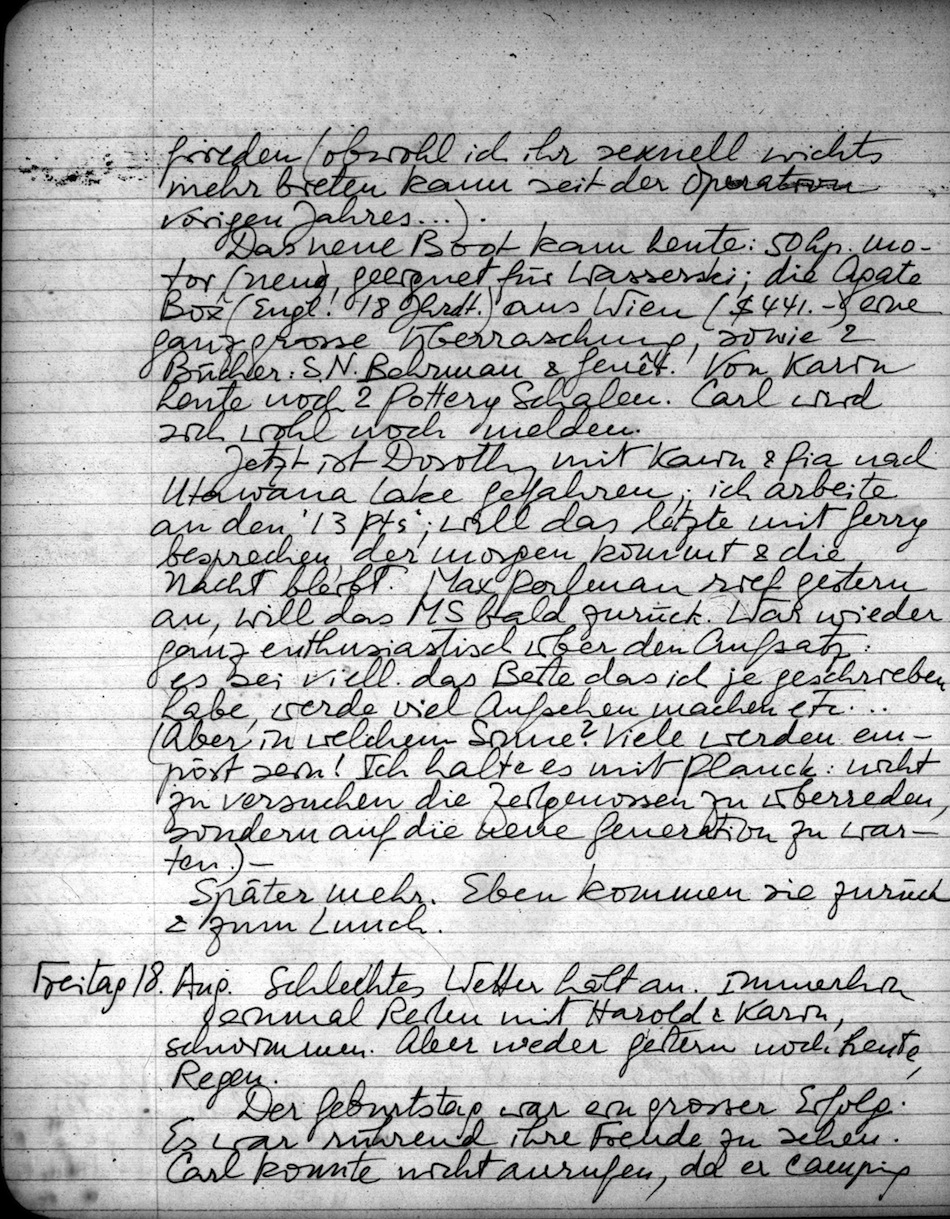 frieden (obwohl ich ihr sexuell nichts
mehr bieten kann seit der Operation
vorigen Jahres...).
Das neue Boot kam heute: 50hp. Mo-
tor (neu), geeignet für Wasserski; die Agate
Box (Engl! 18 Jhrdt.) aus Wien ($441.-) eine
ganz grosse Überraschung, sowie 2
Bücher: S.N. Behrman & Genêt. Von Karin
heute noch 2 Pottery Schalen. Carl wird
sich wohl noch melden.
Jetzt ist Dorothy mit Karin & Gia nach
Utowana Lake gefahren; ich arbeite
an den '13 pts'; will das letzte mit Gerry
besprechen, der morgen kommt & die
Nacht bleibt. Max rief gestern
an, will das MS bald zurück. War wieder
ganz enthusiastisch über den Aufsatz:
es sei viell. das Beste das ich je geschrieben
habe, werde viel Aufsehen machen etc...
(Aber in welchem Sinne? Viele werden em-
pört sein! Ich halte es mit Planck: nicht
zu versuchen die Zeitgenossen zu überreden,
sondern auf die neue Generation zu war-
ten.)-
Später mehr. Eben kommen sie zurück
& zum Lunch.
Freitag 18. Aug. Schlechtes Wetter hält an. Immerhin
einmal Reiten mit Harold & Karin,
schwimmen. Aber weder gestern noch heute,
Regen.
Der Geburtstag war ein grosser Erfolg.
Es war rührend ihre Freude zu sehen.
Carl konnte nicht anrufen, da er camping